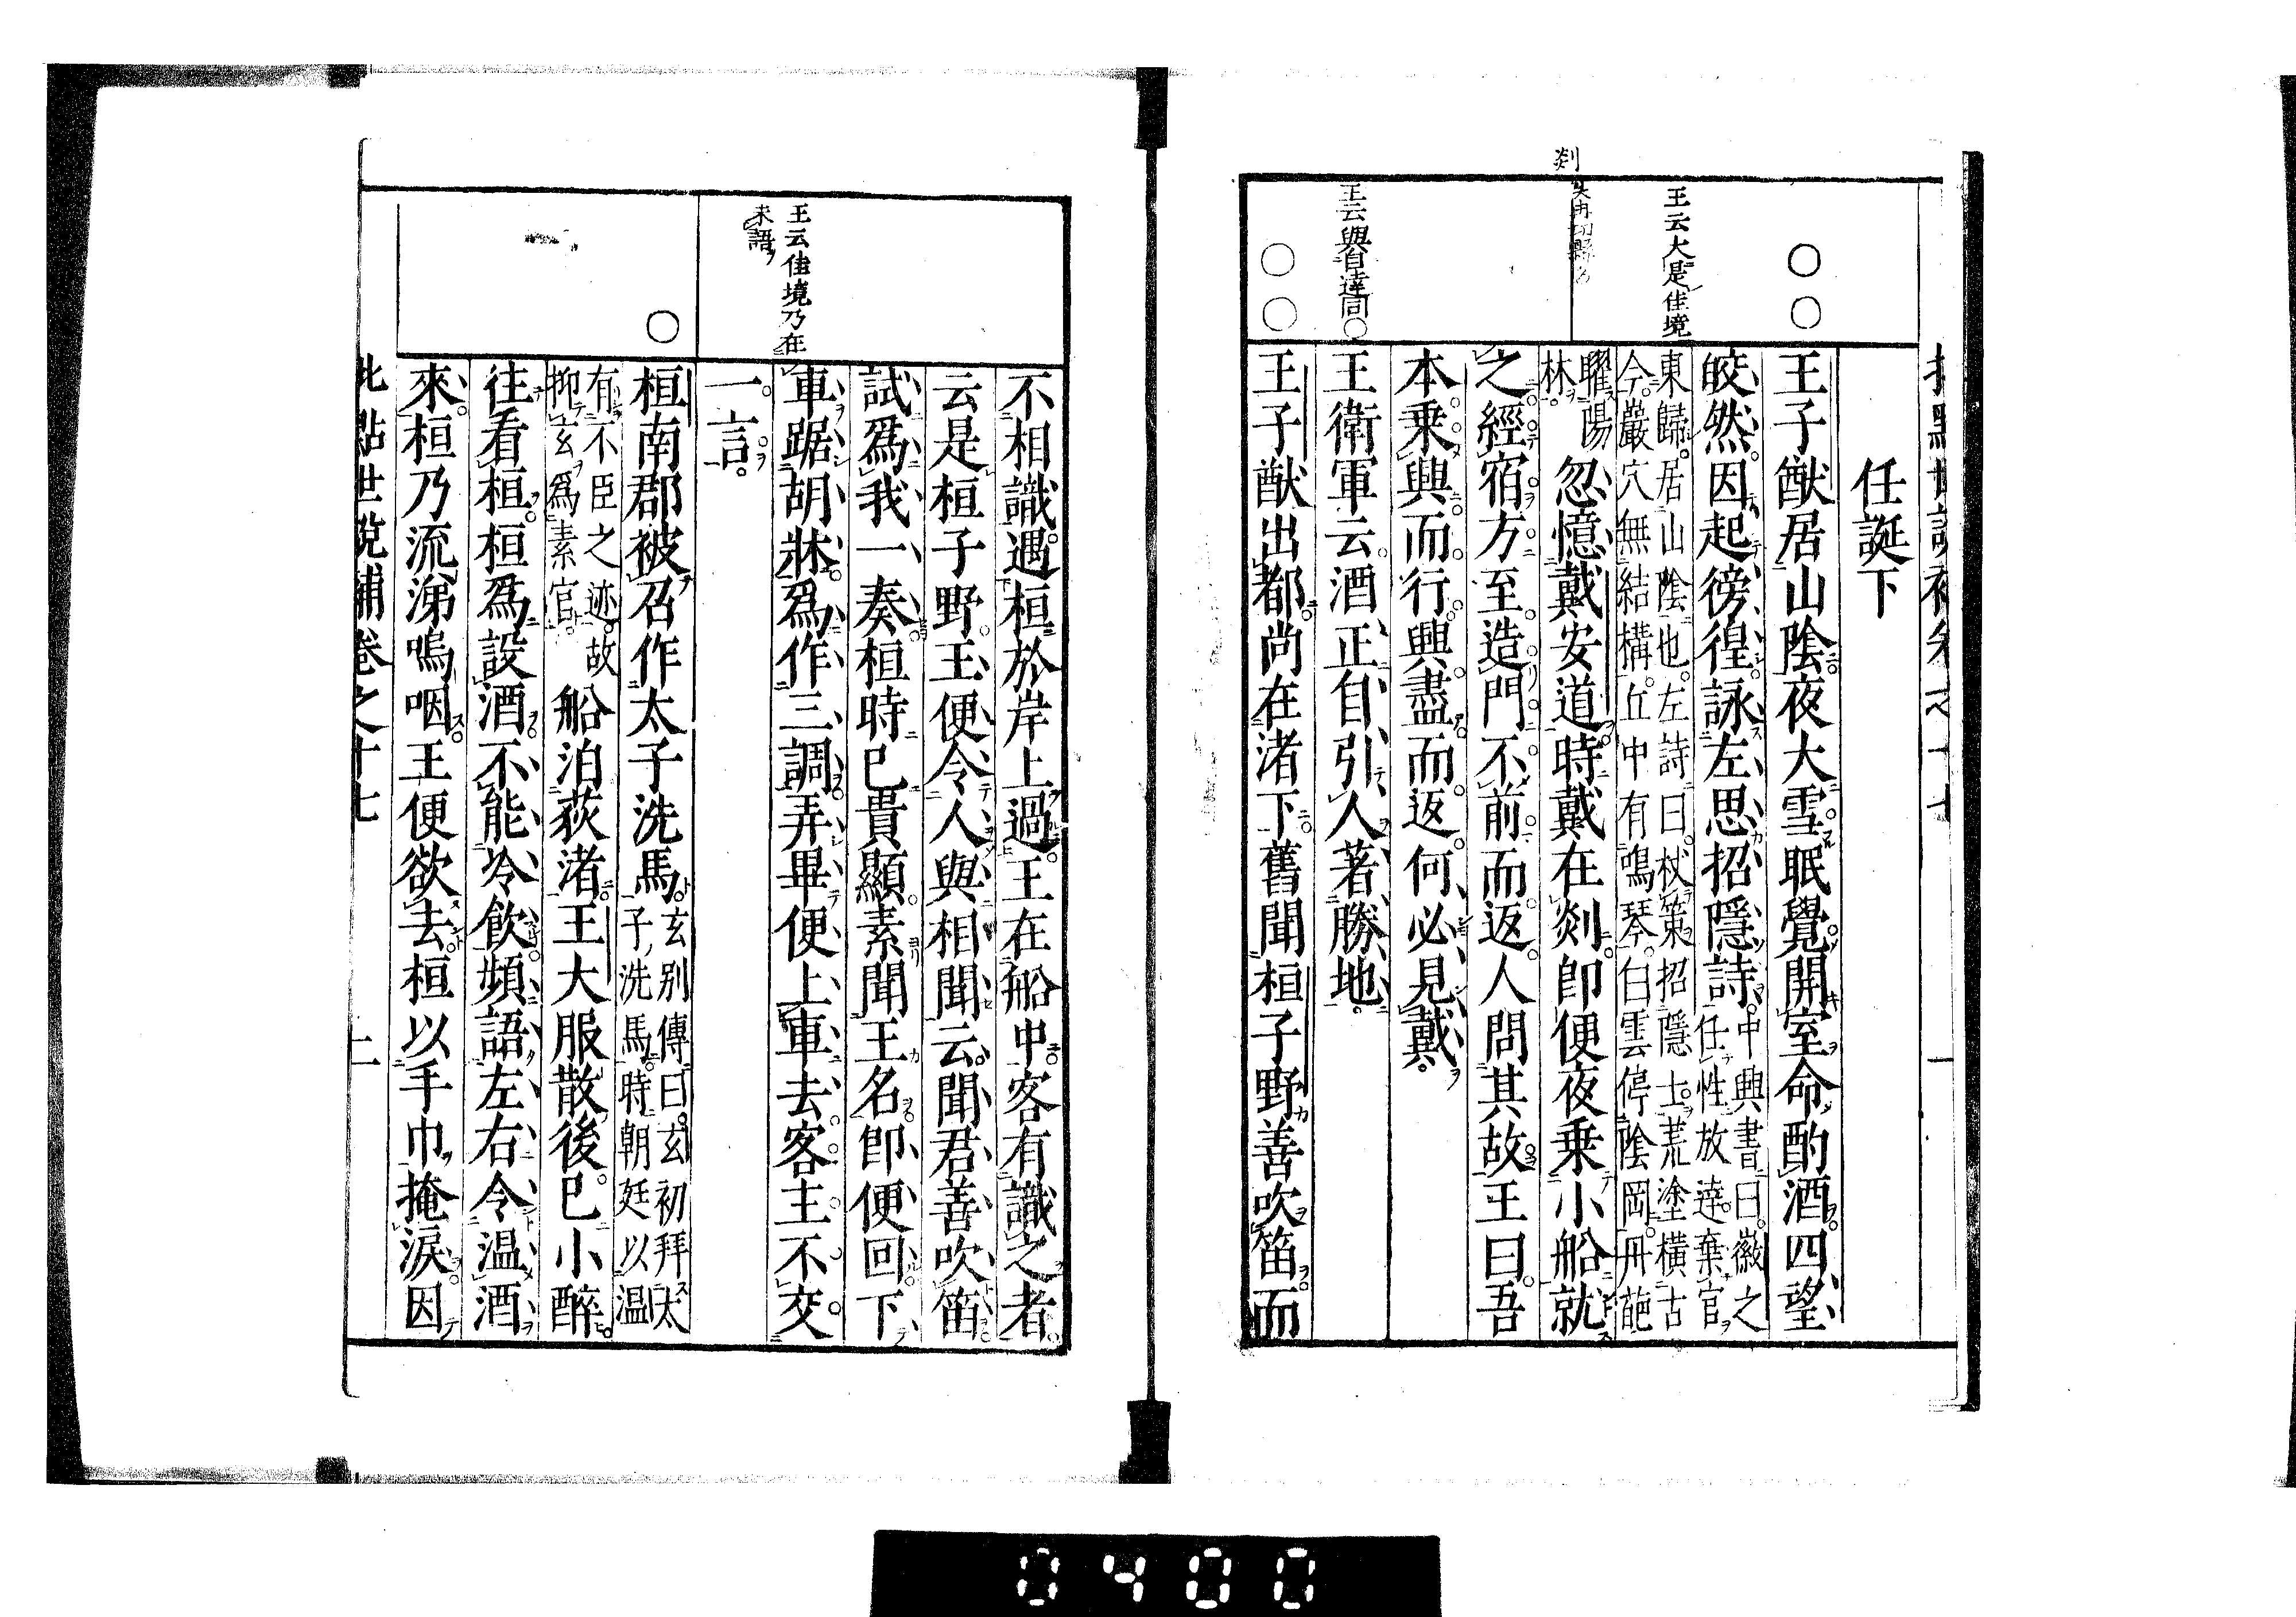 任誕下
王子猷居山陰夜大雪眠覺開室命酌酒四望
皎然因起徬徨詠左思招隱詩中興書曰徽之
任性放達棄官
東歸居山陰也左詩曰杖策招隱士荒塗橫古
今巖穴無結構丘中有鳴琴白雲停陰岡丹葩
曜陽
林
忽憶戴安道時戴在剡卽便夜乗小船就
之經宿方至造門不前而返人問其故王曰吾
本乗興而行興盡而返何必見戴
王衛軍云酒正自引人著勝地
王子猷出都尚在渚下舊聞桓子野善吹笛而
○○
王云大是佳境
剡
王云與自達同○
○○
不相識遇桓於岸上過王在船中客有識之者
云是桓子野王便令人與相聞云聞君善吹笛
試爲我一奏桓時已貴顯素聞王名卽便回下
車踞胡牀爲作三調弄畢便上車去客主不交
一言
桓南郡被召作太子洗馬玄别傳曰玄初拜太
子洗馬時朝廷以温
有不臣之迹故
抑玄爲素官
船泊荻渚王大服散後已小醉
往看桓桓爲設酒不能冷飲頻語左右令温酒
來桓乃流涕嗚咽王便欲去桓以手巾掩淚因
王云佳境乃在
未語
○
批點世說補卷之十七
二
0400